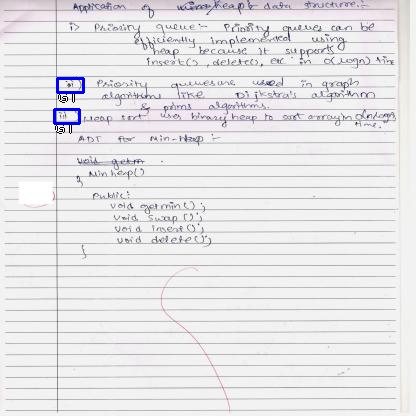 Application of heap data structure:-
i) Priority queue:- Priority queues can be
efficiently implemented using
heap because it supports
insert(), delete(), etc in O(logn) time
Priority queues are used in graph
algorithms like Dijkstra's algorithm
& prims algorithms.
Heap sort uses binary heap to sort array in O(nlogn)
time.
ADT for Min-Heap :-
void getm
Minheap()
{
Public:
void getmin();
void swap();
void insert();
void delete();
}